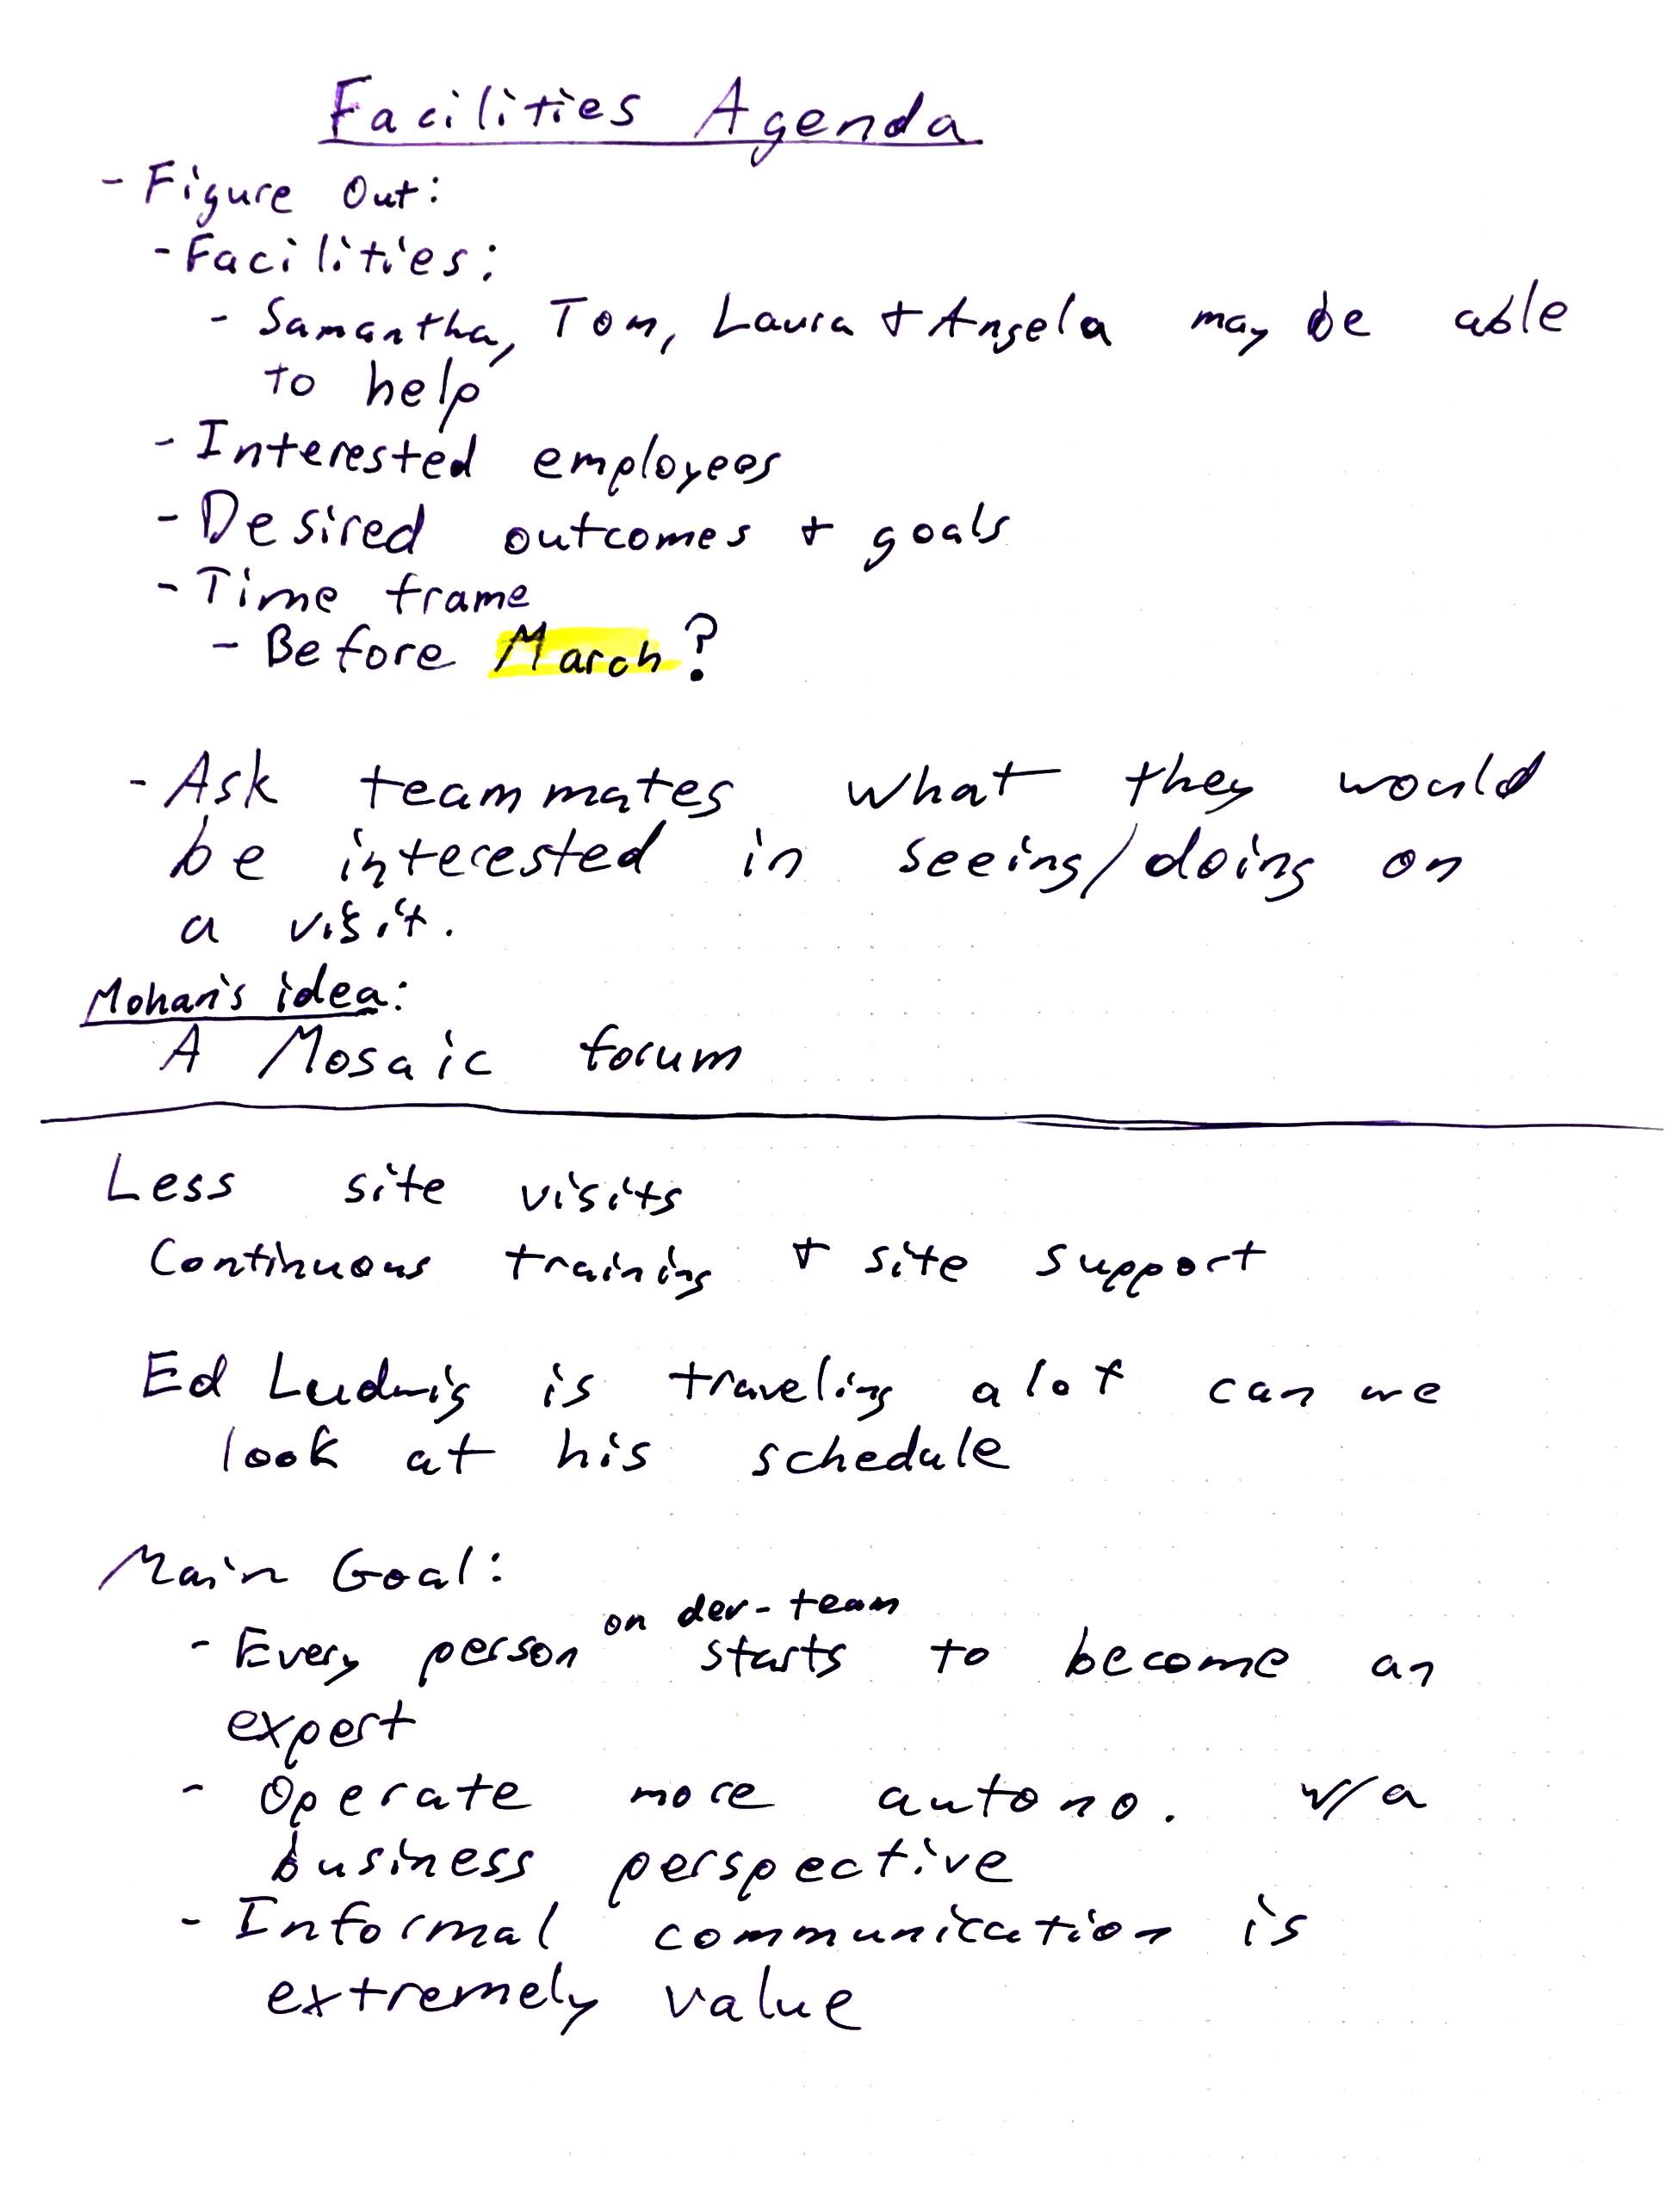 Facilities Agenda
- Figure Out:
- Facilities:
- Samantha, Tom, Laura + Angela may be able
to help
- Interested employees
- Desired outcomes + goals
- Time frame
- Before March?
- Ask teammates what they would
be interested in seeing/doing on
a visit.
Mohan's idea:
A Mosaic forum
Less site visits
Continuous training + site support
Ed Ludwig is traveling alot can we
look at his schedule
Main Goal:
on dev-team
- Every person starts to become an
expert
- Operate more autono. w/a
business perspective
- Informal communication is
extremely value